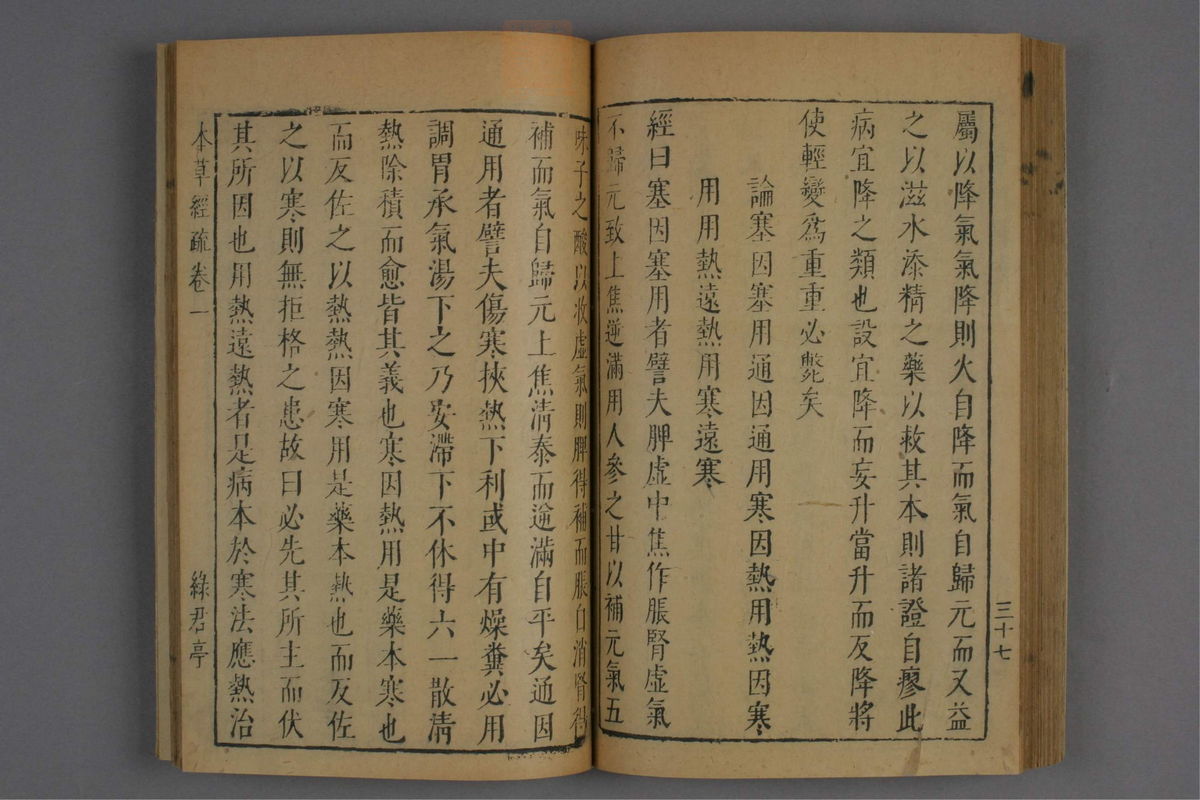 三十七
屬以降氣氣降則火自降而氣自歸元而又益
之以滋水添精之藥以救其本則諸證自瘳此
病宜降之類也設宜降而妄升當升而反降將
使輕變爲重重必斃矣
論塞因塞用通因通用寒因熱用熱因寒
用用熱遠熱用寒遠寒
經曰塞因塞用者譬夫脾虛中焦作脹腎虛氣
不歸元致上焦逆滿用人參之甘以補元氣五
味子之酸以收虛氣則脾得補而脹自消腎得
補而氣自歸元上焦清泰而逆滿自平矣通因
通用者譬夫傷寒挾熱下利或中有燥糞必用
調胃承氣湯下之乃安滯下不休得六一散清
熱除積而愈皆其義也寒因熱用是藥本寒也
而反佐之以熱熱因寒用是藥本熱也而反佐
之以寒則無拒格之患故曰必先其所主而伏
其所因也用熱遠熱者是病本於寒法應熱治
本草經疏卷一
綠君亭